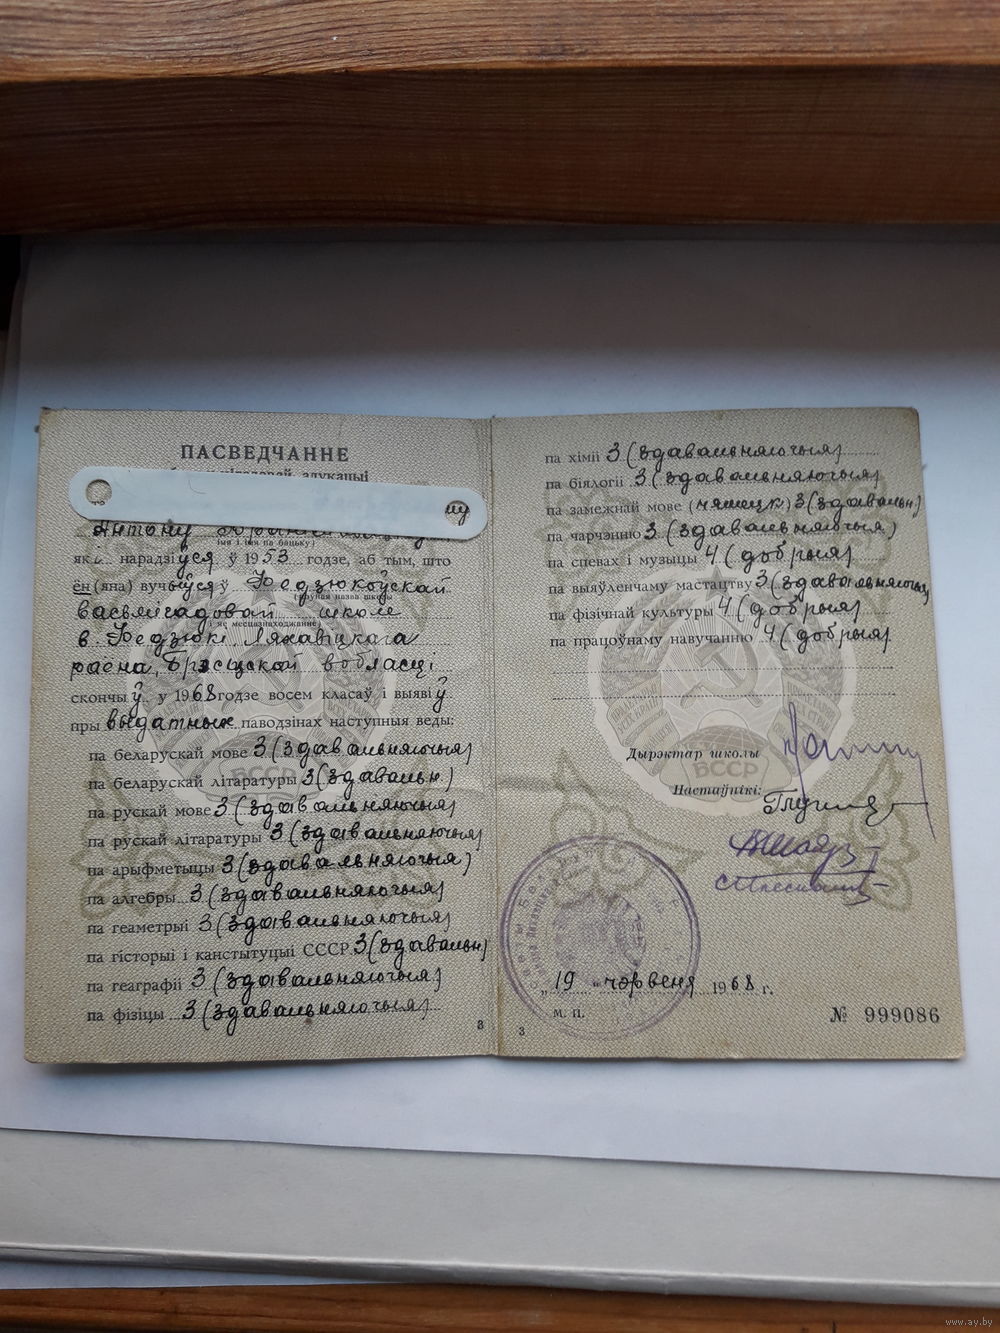 ПАСВЕДЧАННЕ
Антону
(імя і імя па бацьку)
які нарадзіўся ў 1953 годзе, аб тым, што
ён (яна) вучыўся ў Федзюкоўскай
(поўная назва школы
васьмігадовай школе
і яе месцазнаходжанне)
в. Федзюкі Ляхавіцкага
раёна, Брэсцкай вобласці
скончыў у 1968 годзе восем класаў і выявіў
пры выдатных паводзінах наступныя веды:
па беларускай мове 3 (здавальняючыя)
па беларускай літаратуры 3 (здавальн)
па рускай мове 3 (здавальняючыя)
па рускай літаратуры 3 (здавальняючыя)
па арыфметыцы 3 (здавальняючыя)
па алгебры 3 (здавальняючыя)
па геаметрыі 3 (здавальняючыя)
па гісторыі і канстытуцыі СССР 3 (здавальн)
па геаграфіі 3 (здавальняючыя)
па фізіцы 3 (здавальняючыя)
3
па хіміі 3 (здавальняючыя)
па біялогіі 3 (здавальняючыя)
па замежнай мове (нямецк) 3 (здавальн)
па чарчэнню 3 (здавальняючыя)
па спевах і музыцы 4 (добрыя)
па выяўленчаму мастацтву 3 (здавальняючыя
па фізічнай культуры 4 (добрыя)
па працоўнаму навучанню 4 (добрыя)
Дырэктар школы
БССР
БССР
Настаўнікі:
„19 " чэрвеня 1968 г.
М. П.
№ 999086
3
www.ay.by